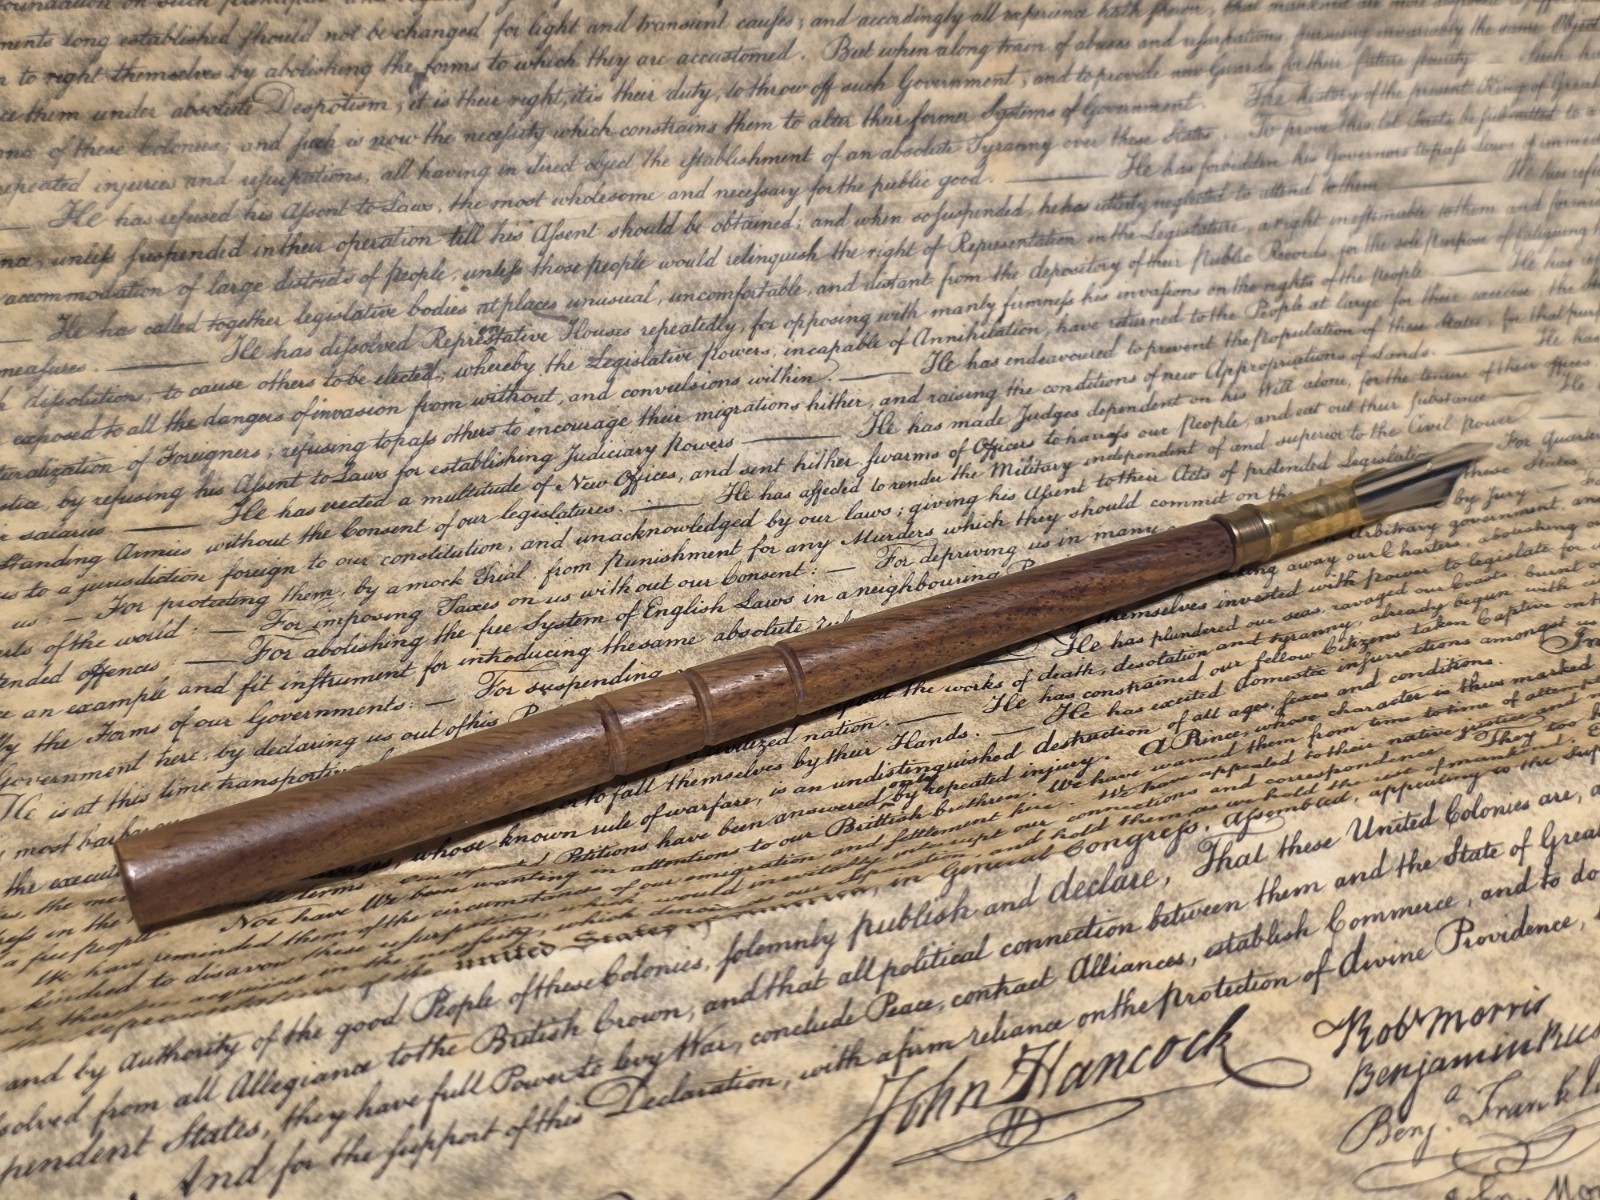 ments long established should not be changed for light and transient causes; and accordingly all experience hath shewn, that mankind are more disposed to
n to right themselves by abolishing the forms to which they are accustomed. But when a long train of abuses and usurpations, pursuing invariably the same Object
ce them under absolute Despotism, it is their right, it is their duty, to throw off such Government, and to provide new Guards for their future security. — Such has
of these Colonies; and such is now the necessity which constrains them to alter their former Systems of Government. The history of the present King of Great
repeated injuries and usurpations, all having in direct object the establishment of an absolute Tyranny over these States. To prove this, let Facts be submitted to a
He has refused his Assent to Laws, the most wholesome and necessary for the public good. — He has forbidden his Governors to pass Laws of immed
unless suspended in their operation till his Assent should be obtained; and when so suspended, he has utterly neglected to attend to them. — He has refus
accommodation of large districts of people, unless those people would relinquish the right of Representation in the Legislature, a right inestimable to them and formid
He has called together legislative bodies at places unusual, uncomfortable, and distant from the depository of their Public Records, for the sole purpose of fatiguing
measures. — He has dissolved Representative Houses repeatedly, for opposing with manly firmness his invasions on the rights of the people. — He has ref
dissolutions, to cause others to be elected; whereby the Legislative powers, incapable of Annihilation, have returned to the People at large for their exercise; the
exposed to all the dangers of invasion from without, and convulsions within. — He has endeavoured to prevent the population of these States; for that purp
turalization of Foreigners; refusing to pass others to encourage their migrations hither, and raising the conditions of new Appropriations of Lands. — He has
stice, by refusing his Assent to Laws for establishing Judiciary powers — He has made Judges dependent on his Will alone, for the tenure of their offices,
salaries — He has erected a multitude of New Offices, and sent hither swarms of Officers to harrass our people, and eat out their substance — He
Standing Armies without the Consent of our legislatures. — He has affected to render the Military independent of and superior to the Civil power
us to a jurisdiction foreign to our constitution, and unacknowledged by our laws; giving his Assent to their Acts of pretended Legislatio For quarter
us: — For protecting them, by a mock Trial from punishment for any Murders which they should commit on the these States
rts of the world: — For imposing Taxes on us without our Consent: — For depriving us in many by Jury
tended offences: — For abolishing the free System of English Laws in a neighbouring P Arbitrary government, an
ce an example and fit instrument for introducing the same absolute rule king away our Charters, abolishing ou
ly the Forms of our Governments: — For suspending themselves invested with power to legislate for
Government here, by declaring us out of his P He has plundered our seas, ravaged our Coasts, burnt
He is at this time transportin the works of death, desolation and tyranny, already begun with ci
most barbarou ivilized nation. — He has constrained our fellow Citizens taken Captive on
the execut or to fall themselves by their Hands. — He has excited domestic insurrections amongst us
the mer ages, whose known rule of warfare, is an undistinguished destruction of all ages, sexes and conditions. In
ress in the terms: Our repeated Petitions have been answered only by repeated injury. A Prince, whose character is thus marked
a free people. Nor have We been wanting in attentions to our Brittish brethren. We have warned them from time to time of attempt
We have reminded them of the circumstances of our emigration and settlement here. We have appealed to their native justice and m
kindred to disavow these usurpations, which would inevitably interrupt our connections and correspondence. They too h
therefore acquiesce in the necessity, which denounces our Separation, and hold them, as we hold the rest of mankind, E
representatives of the united States of America, in General Congress, Assembled, appealing to the Sup
and by Authority of the good People of these Colonies, solemnly publish and declare, That these United Colonies are, a
solved from all Allegiance to the British Crown, and that all political connection between them and the State of Great
pendent States, they have full Power to levy War, conclude Peace, contract Alliances, establish Commerce, and to do
And for the support of this Declaration, with a firm reliance on the protection of divine Providence,
John Hancock
Robt Morris
Benjamin Rus
Benj. Frankli